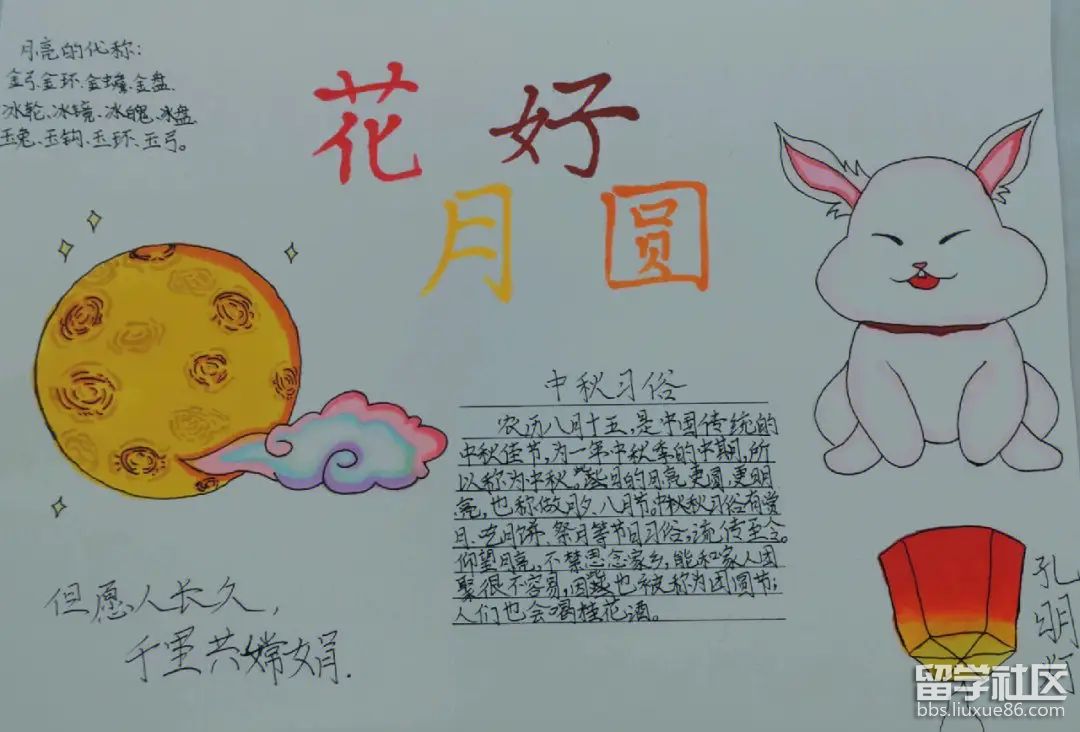 月亮的代称:
金弓、金环、金蟾、金盘、
冰轮、冰镜、冰魄、冰盘
玉兔、玉钩、玉环、玉弓。
花好
月圆
中秋习俗
农历八月十五,是中国传统的
中秋佳节,为一年中秋季的中期,所
以称为中秋,
的月亮更圆,更明
亮,也称做月夕、八月节,中秋秋习俗有赏
月、吃月饼、祭月等节日习俗,流传至今。
仰望月亮,不禁思念家乡,能和家人团
聚很不容易,因
也被称为团圆节;
人们也会喝桂花酒。
但愿人长久,
千里共婵娟.
孔明灯
留学社区
bbs.liuxue86.com